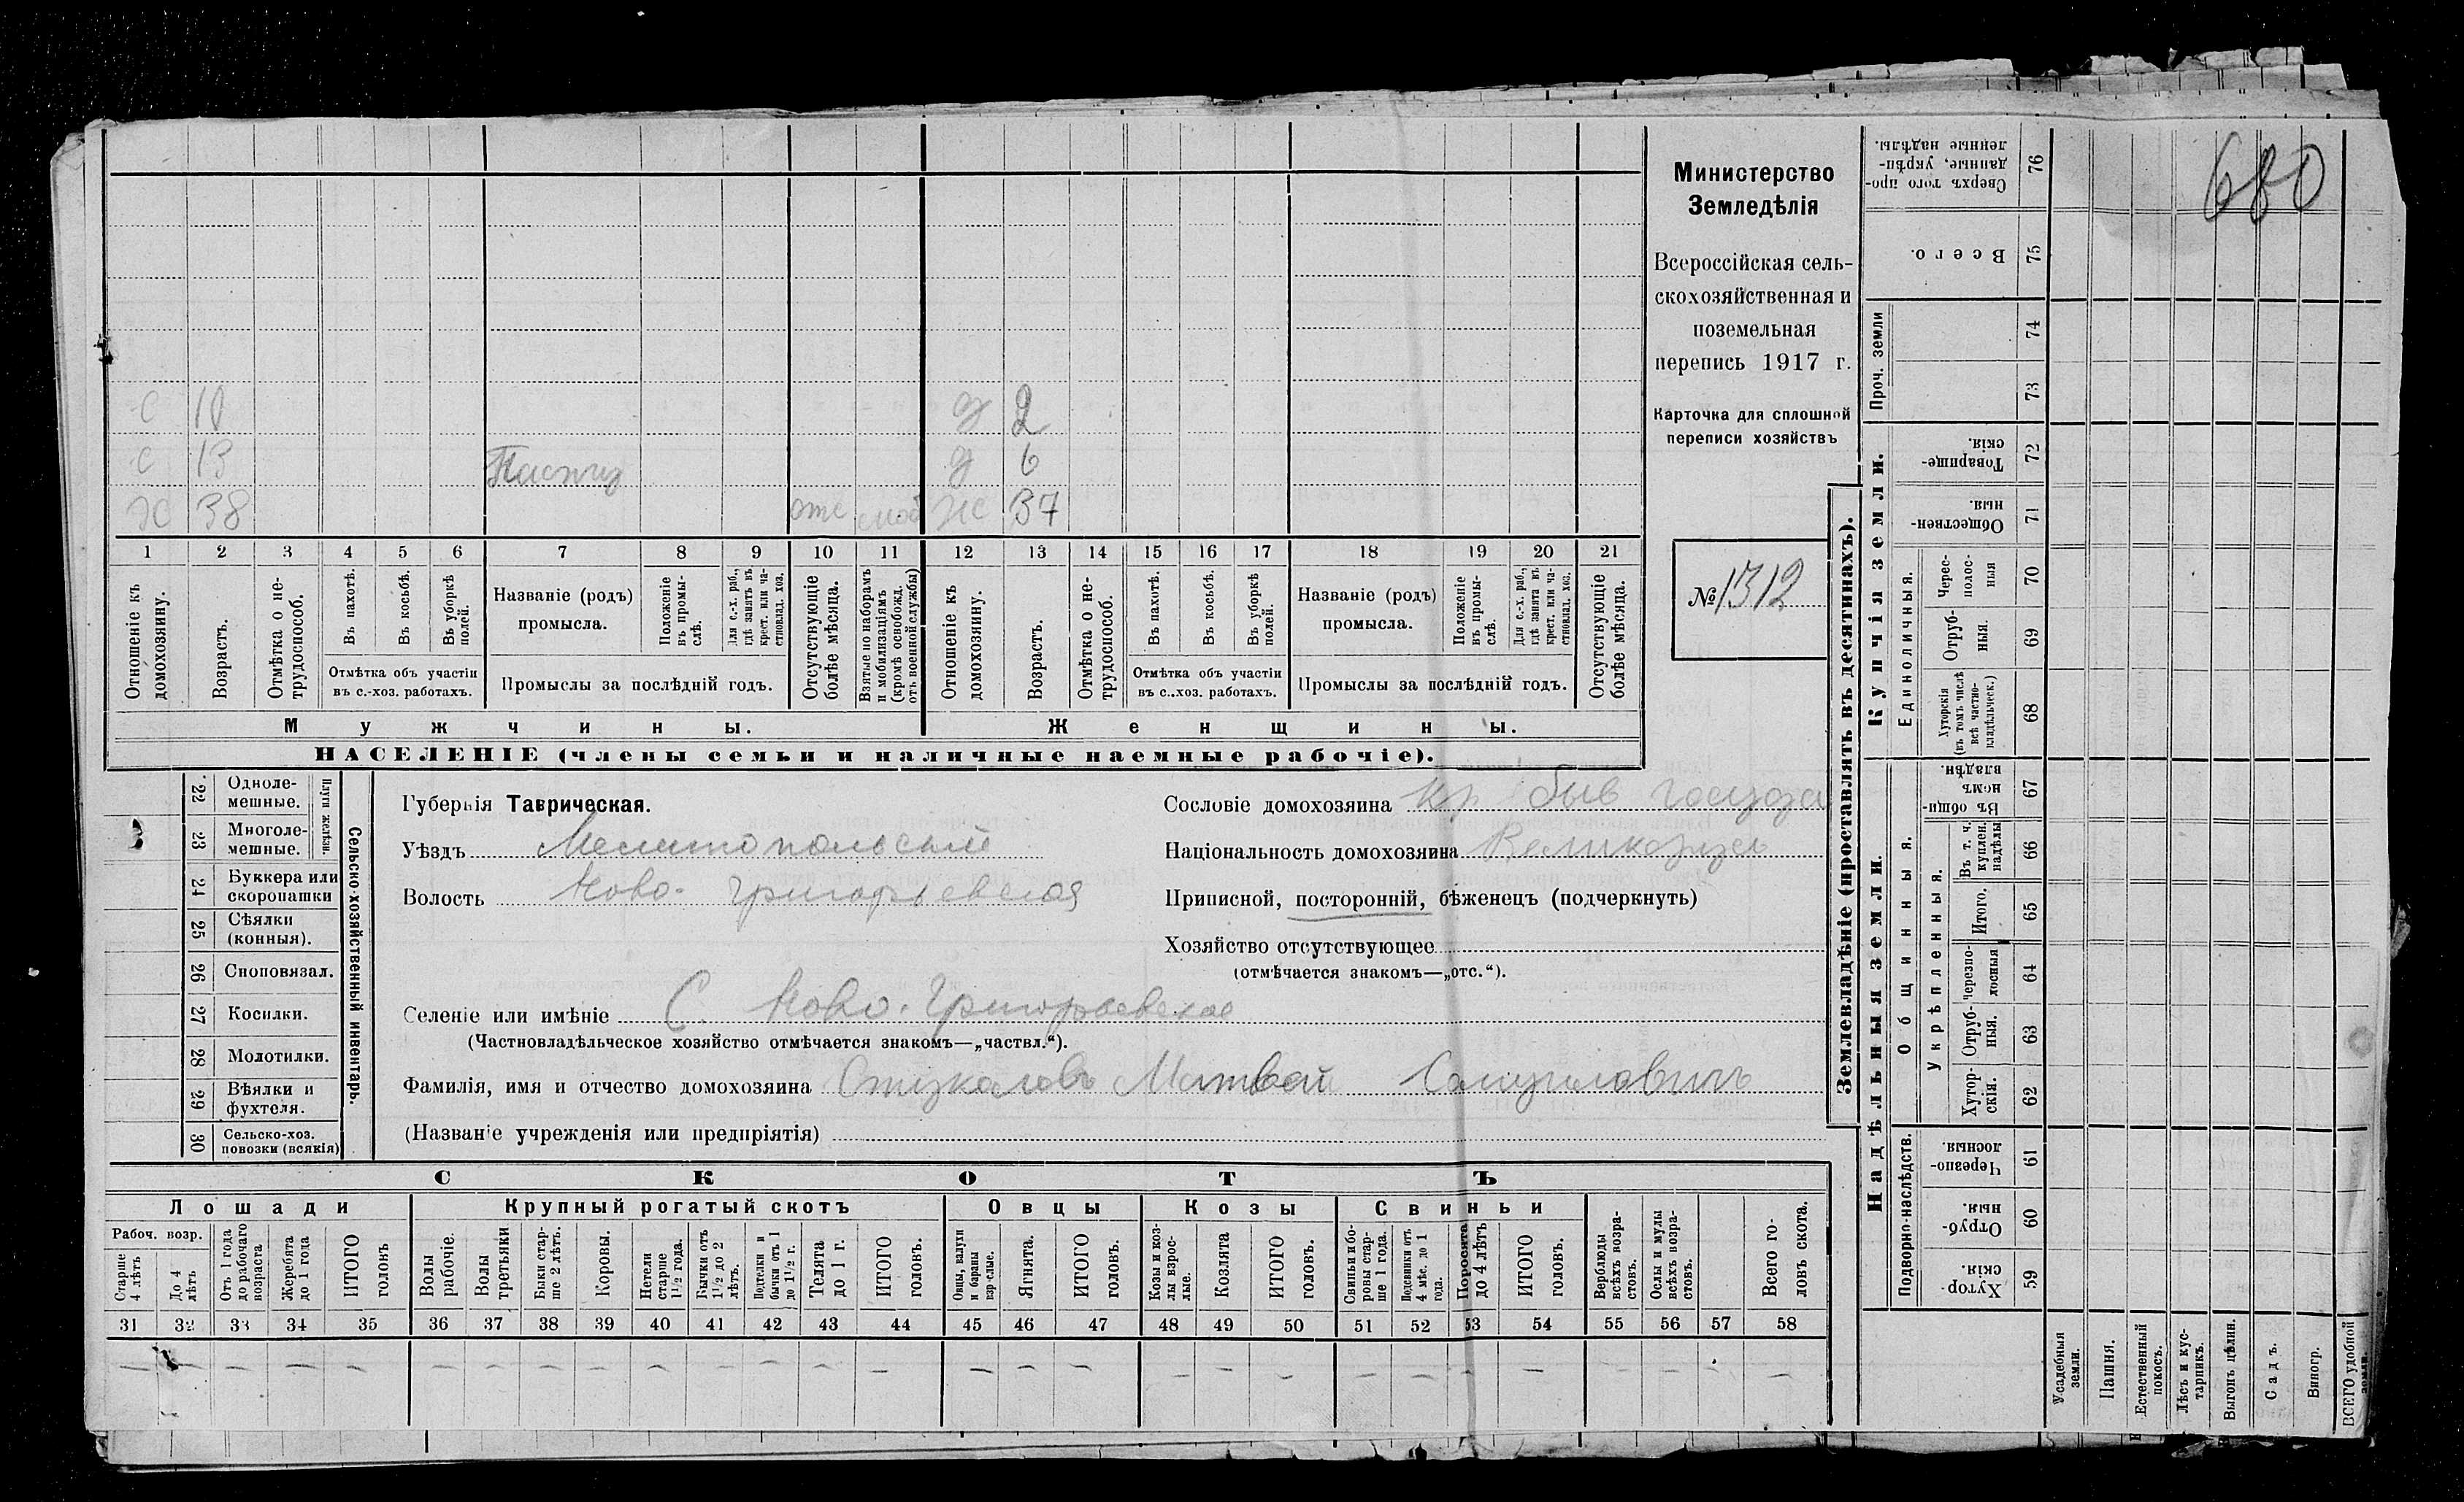 680
Министерство
Земледѣлія
Всероссійская сель-
скохозяйственная и
поземельная
перепись 1917 г.
Карточка для сплошной
переписи хозяйствъ
№ 1312
с 10 д 2
с 13 д 6
х 38 отс моб ж 37
1 2 3 4 5 6 7 8 9 10 11 12 13 14 15 16 17 18 19 20 21
Отношеніе къ домохозяину.
Возрастъ.
Отмѣтка о не-трудоспособ.
Въ пахотѣ.
Въ косьбѣ.
Въ уборкѣ полей.
Отмѣтка объ участіи
въ с.-хоз. работахъ.
Названіе (родъ)
промысла.
Положеніе въ промы-слѣ.
Для с.-х. раб., гдѣ занятъ въ крест. или ча-стновлад. хоз.
Промыслы за послѣдній годъ.
Отсутствующіе болѣе мѣсяца.
Взятые по наборамъ и мобилизаціямъ (кромѣ освобожд. отъ военной службы)
Отношеніе къ домохозяину.
Возрастъ.
Отмѣтка о не-трудоспособ.
Въ пахотѣ.
Въ косьбѣ.
Въ уборкѣ полей.
Отмѣтка объ участіи
въ с.-хоз. работахъ.
Названіе (родъ)
промысла.
Положеніе въ промы-слѣ.
Для с.-х. раб., гдѣ занята въ крест. или ча-стновлад. хоз.
Промыслы за послѣдній годъ.
Отсутствующіе болѣе мѣсяца.
Мужчины.
Женщины.
НАСЕЛЕНІЕ (члены семьи и наличные наемные рабочіе).
22 Одноле-мешные.
23 Многоле-мешные.
Плуги желѣзн.
24 Буккера или скоропашки
25 Сѣялки (конныя).
26 Сноповязал.
27 Косилки.
28 Молотилки.
29 Вѣялки и фухтеля.
30 Сельско-хоз. повозки (всякія)
Сельско-хозяйственный инвентарь.
Губернія Таврическая.
Уѣздъ Мелитопольский
Волость Ново-Григорьевская
Селеніе или имѣніе С. Ново-Григорьевское
(Частновладѣльческое хозяйство отмѣчается знакомъ—„частвл.“).
Фамилія, имя и отчество домохозяина Стукаловъ Матвей Самуилович
(Названіе учрежденія или предпріятія)
Сословіе домохозяина кр быв госуда
Національность домохозяина Великорус
Приписной, посторонній, бѣженецъ (подчеркнуть)
Хозяйство отсутствующее
(отмѣчается знакомъ—„отс.“).
СКОТЪ
Лошади
Рабоч. возр.
Старше 4 лѣтъ
До 4 лѣтъ
Отъ 1 года до рабочаго возраста
Жеребята до 1 года
ИТОГО головъ
Крупный рогатый скотъ
Волы рабочіе.
Волы третьяки
Быки стар-ше 2 лѣтъ.
Коровы.
Нетели старше 1½ года.
Бычки отъ 1½ до 2 лѣтъ.
Подтелки и бычки отъ 1 до 1½ г.
Телята до 1 г.
ИТОГО головъ.
Овцы
Овцы, валухи и бараны взр-слые.
Ягнята.
ИТОГО головъ.
Козы
Козы и коз-лы взрос-лые.
Козлята
ИТОГО головъ.
Свиньи
Свиньи и бо-ровы стар-ше 1 года.
Подсвинки отъ 4 мѣс. до 1 года.
Поросята до 4 лѣтъ
ИТОГО головъ.
Верблюды всѣхъ возра-стовъ.
Ослы и мулы всѣхъ возра-стовъ.
Всего го-ловъ скота.
31 32 33 34 35 36 37 38 39 40 41 42 43 44 45 46 47 48 49 50 51 52 53 54 55 56 57 58
— — — — — — — — — — — — — — — — — — — — — — — — — — —
Землевладѣніе (проставлять въ десятинахъ).
Купчія земли.
Сверхъ того про-данные, укрѣп-ленные надѣлы. 76
Всего. 75
Проч. земли 74
73
Товарище-скія. 72
Обществен-ныя. 71
Единоличныя.
Черес-полос-ныя 70
Отруб-ныя. 69
Хуторскія (въ томъ числѣ всѣ частно-владѣльческ.) 68
Надѣльныя земли.
Общинныя.
Въ общи-номъ владѣн. 67
Укрѣпленныя.
Въ т. ч. куплен. надѣлы 66
Итого. 65
Черезпо-лосныя 64
Отруб-ныя. 63
Хутор-скія. 62
Подворно-наслѣдств.
Черезпо-лосныя 61
Отруб-ныя. 60
Хутор-скія. 59
Усадебныя земли.
Пашня.
Естественный покосъ.
Лѣсъ и кус-тарникъ.
Выгонъ цѣлин.
Садъ.
Виногр.
ВСЕГО удобной земли.